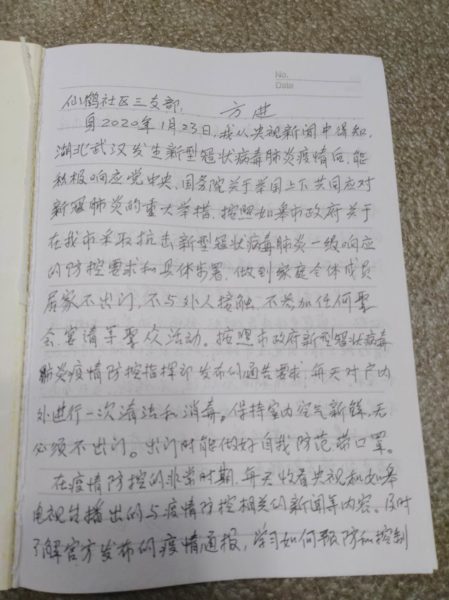 No.
Date
仙鹤社区三支部, 方进
自2020年1月23日,我从央视新闻中得知,
湖北武汉发生新型冠状病毒肺炎疫情后,能
积极响应党中央、国务院关于举国上下共同应对
新冠肺炎的重大举措,按照如皋市政府关于
在我市采取抗击新型冠状病毒肺炎一级响应
的防控要求和具体步署,做到家庭全体成员
居家不出门,不与外人接触,不参加任何聚
会宴请等聚众活动。按照市政府新型冠状病毒
肺炎疫情防控指挥部发布的通告要求,每天对户内
外进行一次清洁和消毒。保持室内空气新鲜,无
必须不出门。出门时能做好自我防范带口罩。
在疫情防控的非常时期,每天收看央视和如皋
电视台播出的与疫情防控相关的新闻等内容。及时
了解官方发布的疫情通报,学习如何预防和控制